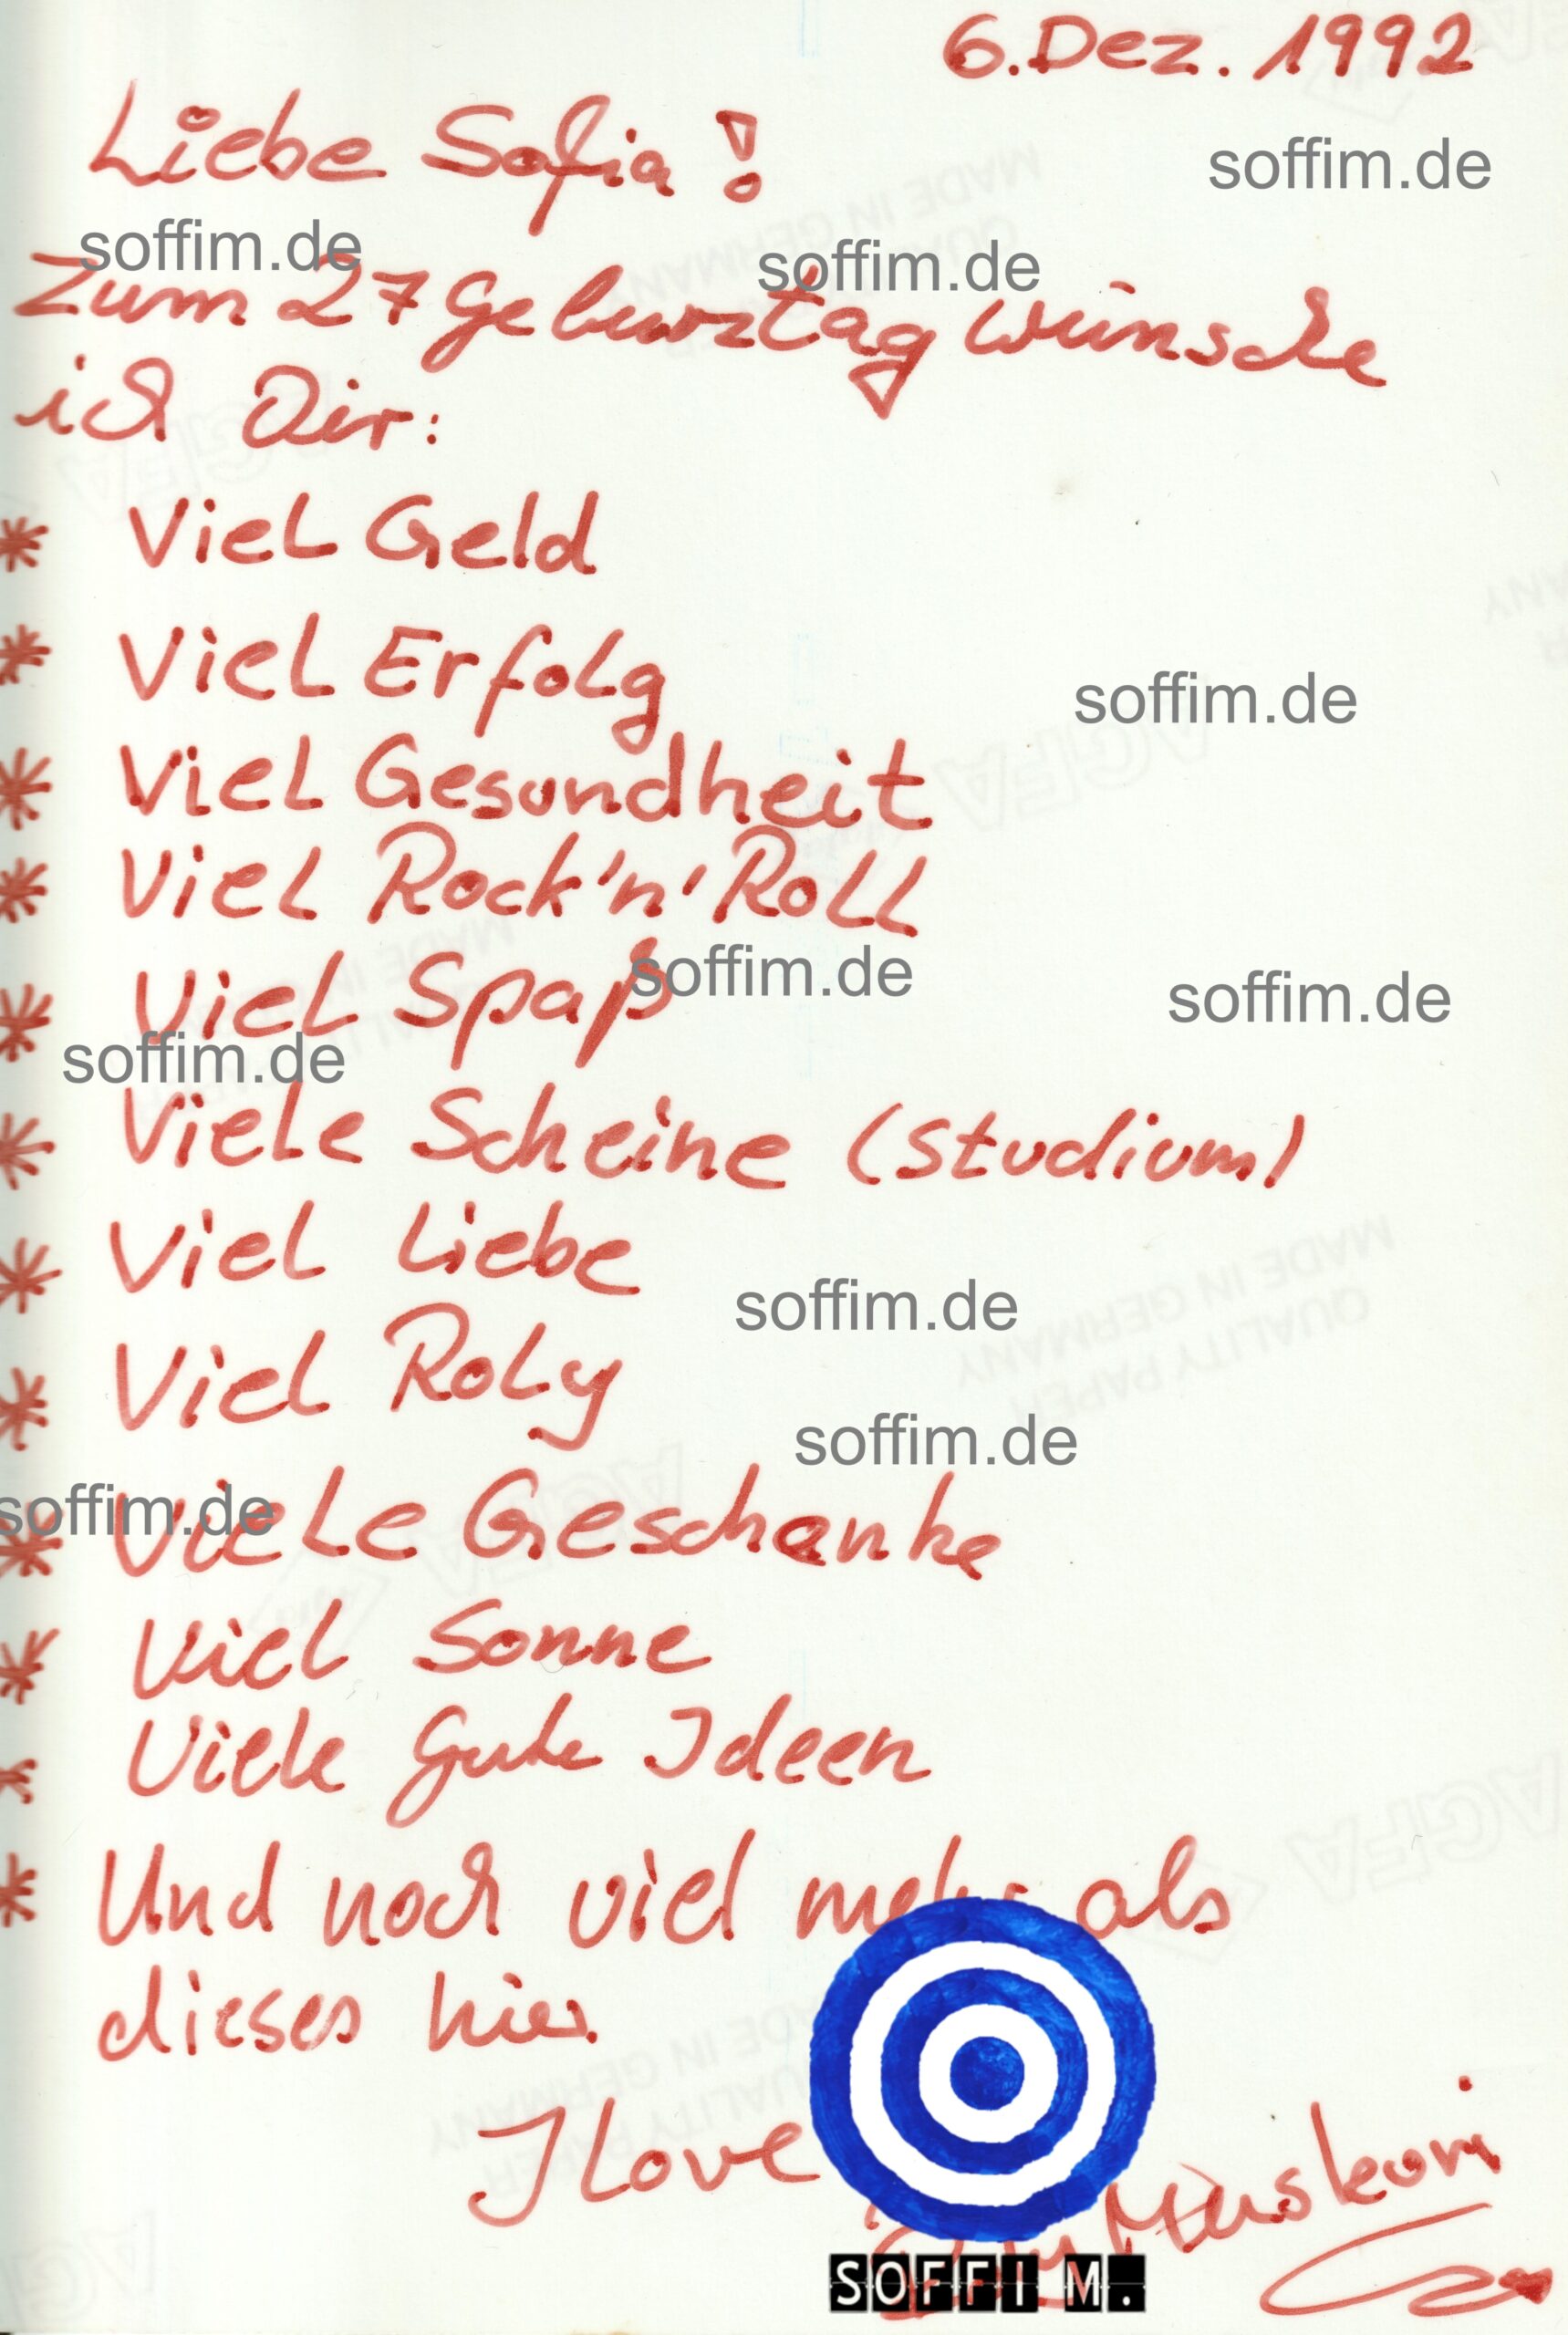 6. Dez. 1992
Liebe Sofia!
soffim.de
soffim.de
soffim.de
Zum 27 Geburztag wünsche
ich Dir:
* Viel Geld
* Viel Erfolg
soffim.de
* Viel Gesundheit
* Viel Rock'n'Roll
* Viel Spaß
soffim.de
soffim.de
soffim.de
* Viele Scheine (Studium)
* Viel Liebe
soffim.de
* Viel Roly
soffim.de
soffim.de
* Viele Geschenke
* Viel Sonne
* Viele gute Ideen
* Und noch viel mehr als
dieses hier.
I love
SOFFI M.
AGFA
QUALITY PAPER
MADE IN GERMANY